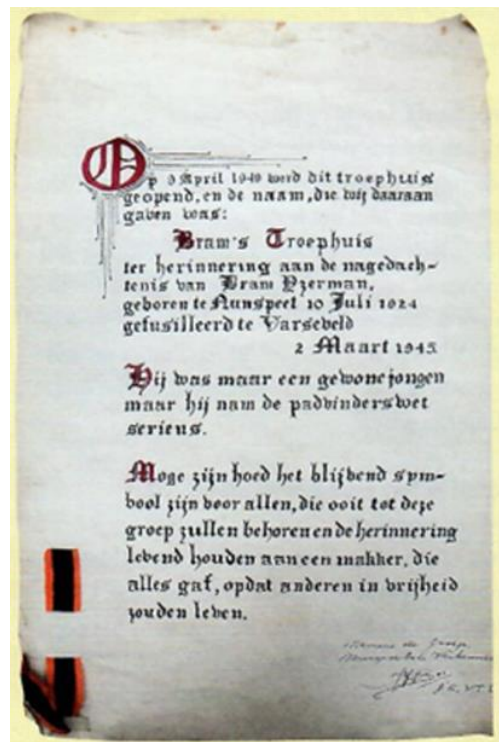 Op 9 April 1949 werd dit troephuis
geopend, en de naam, die wij daaraan
gaven was:
Bram's Troephuis
ter herinnering aan de nagedach-
tenis van Bram Yzerman,
geboren te Nunspeet 10 Juli 1924
gefusilleerd te Varseveld
2 Maart 1945
Hij was maar een gewone jongen
maar hij nam de padvinderswet
serieus.
Moge zijn hoed het blijvend sym-
bool zijn voor allen, die ooit tot deze
groep zullen behoren en de herinnering
levend houden aan een makker, die
alles gaf, opdat anderen in vrijheid
zouden leven.
Namens de Groep